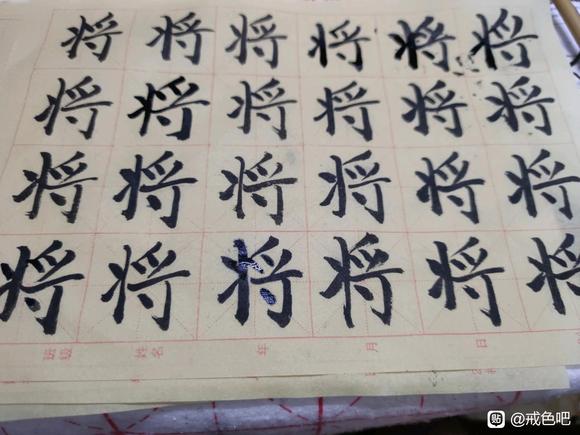 将将将将将将
将将将将将将
将将将将将将
将将将将将将将
班级 姓名 年 月 日
贴 @戒色吧